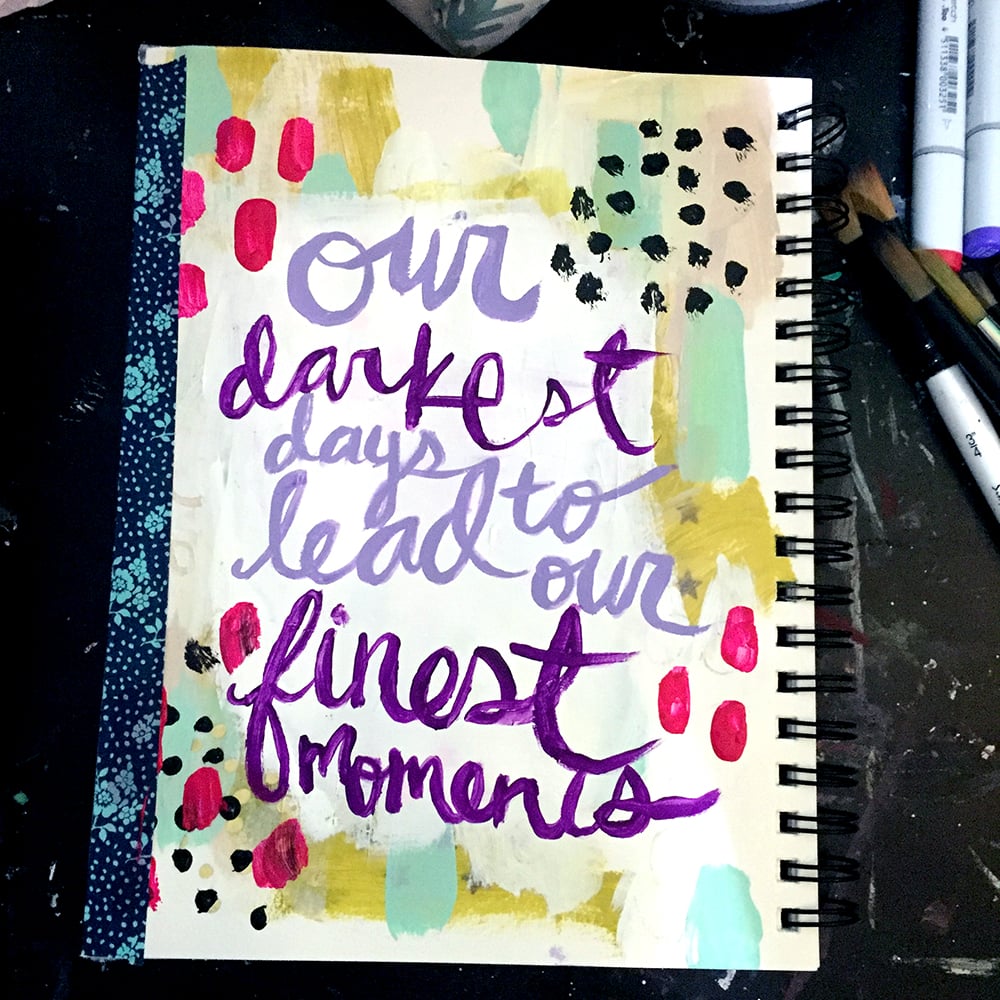 our
darkest
days
lead to
our
finest
moments